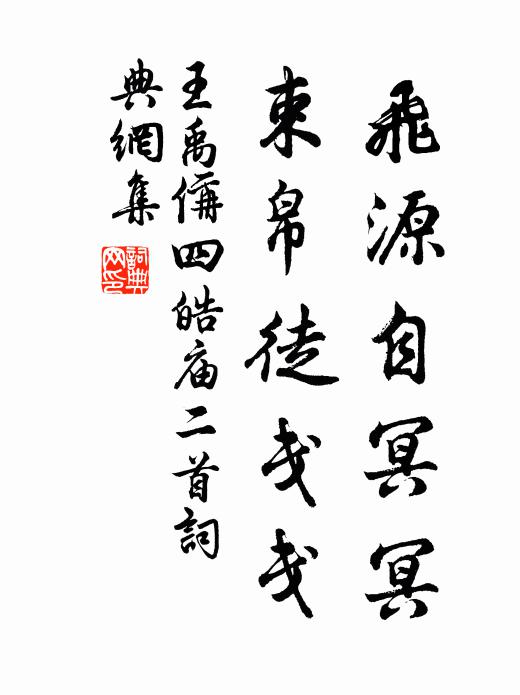 飛源自冥冥
束帛徒戔戔
王禹偁四皓庙二首詞
典網集
詞典網印